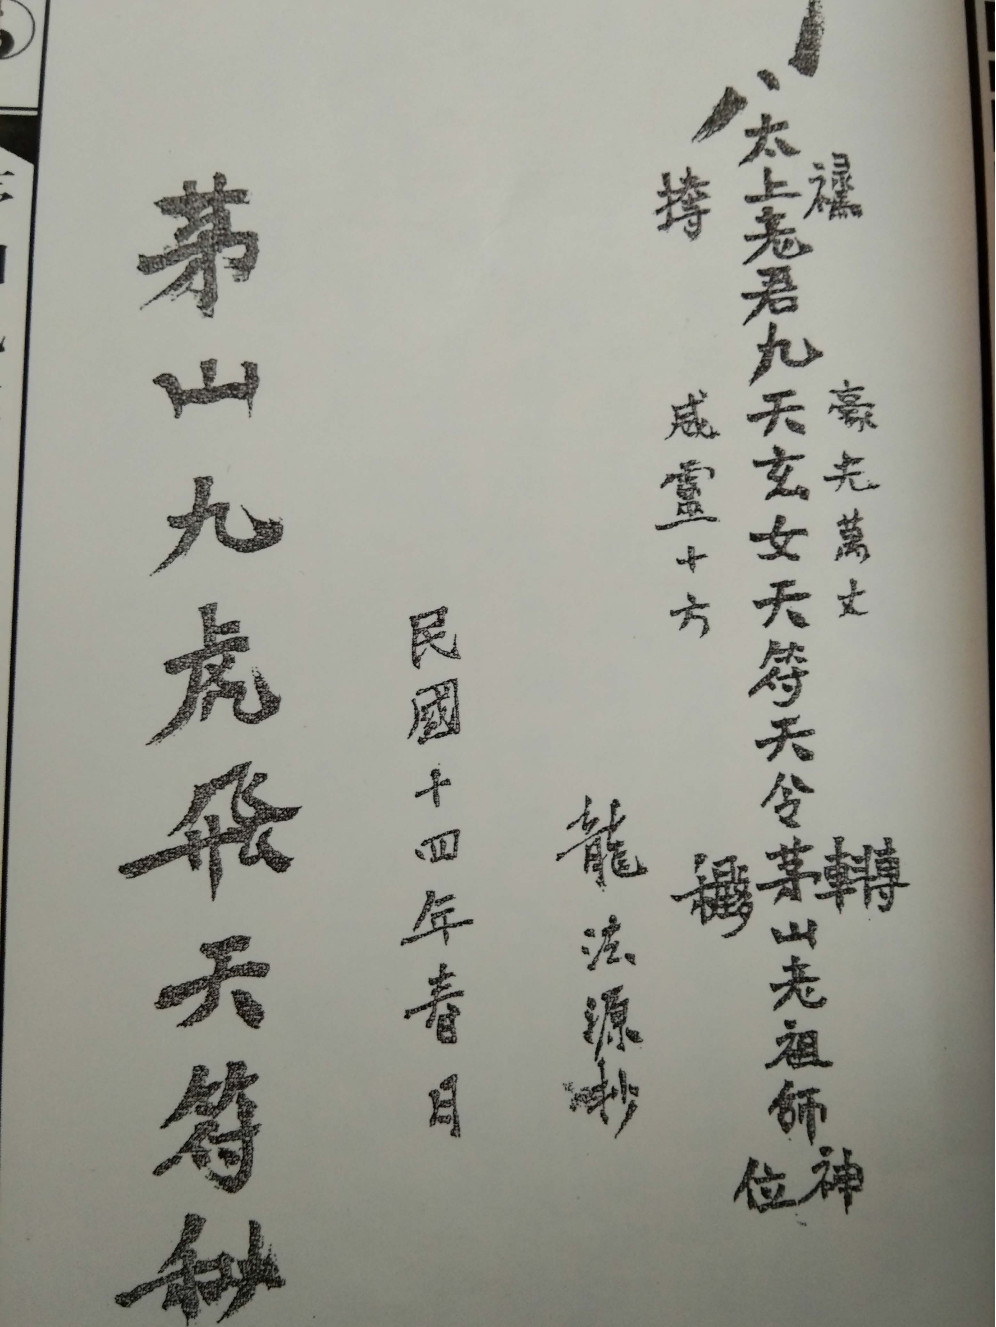 豪光萬丈
太上老君九天玄女天符天令茅山老祖師神位
威靈十方
龍法源抄
民國十四年春日
茅山九虎飛天符秘